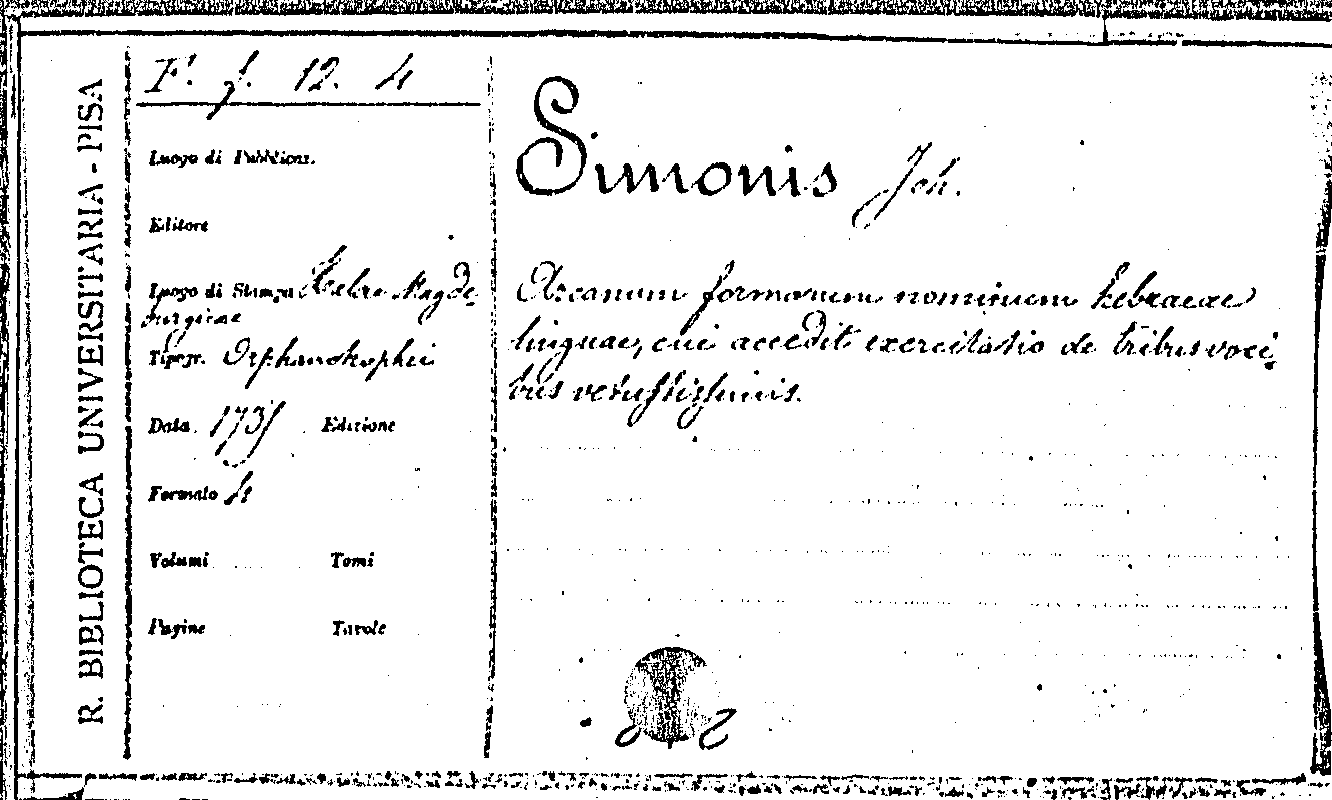 R. BIBLIOTECA UNIVERSITARIA - PISA
F. f. 12. 4
Luogo di Pubblicaz.
Editore
Luogo di Stampa Halae Magde-
burgicae
Tipogr. Orphanotrophei
Data 1735 Edizione
Formato 4
Volumi Tomi
Pagine Tavole
Simonis Joh.
Arcanum formarum nominum hebraeae
linguae, cui accedit exercitatio de tribus voci-
bus vetustissimis.